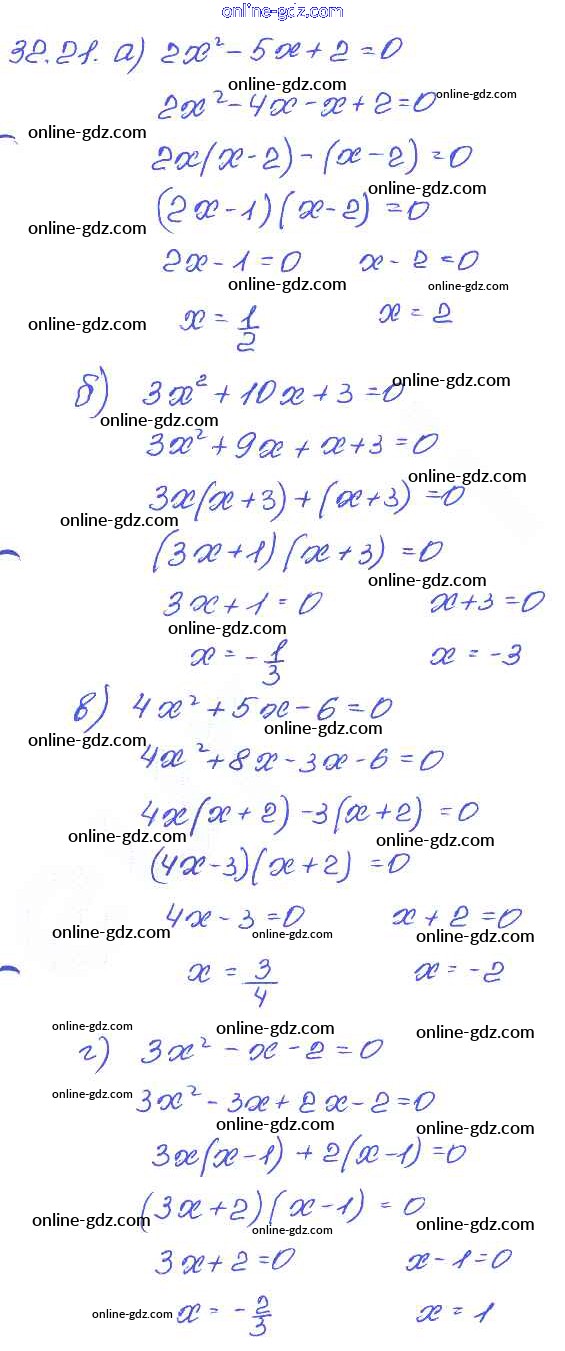 online-gdz.com
32.21. а) 2x² - 5x + 2 = 0
online-gdz.com
2x² - 4x - x + 2 = 0 online-gdz.com
online-gdz.com
2x(x - 2) - (x - 2) = 0
online-gdz.com
(2x - 1)(x - 2) = 0
online-gdz.com
2x - 1 = 0 x - 2 = 0
online-gdz.com online-gdz.com
online-gdz.com x = 1/2 x = 2
б) 3x² + 10x + 3 = 0 online-gdz.com
online-gdz.com
3x² + 9x + x + 3 = 0
online-gdz.com
3x(x + 3) + (x + 3) = 0
online-gdz.com
(3x + 1)(x + 3) = 0
online-gdz.com
3x + 1 = 0 x + 3 = 0
online-gdz.com
x = - 1/3 x = -3
в) 4x² + 5x - 6 = 0
online-gdz.com online-gdz.com
4x² + 8x - 3x - 6 = 0
4x(x + 2) - 3(x + 2) = 0
online-gdz.com online-gdz.com
(4x - 3)(x + 2) = 0
4x - 3 = 0 x + 2 = 0
online-gdz.com online-gdz.com online-gdz.com
x = 3/4 x = -2
online-gdz.com online-gdz.com online-gdz.com
г) 3x² - x - 2 = 0
online-gdz.com 3x² - 3x + 2x - 2 = 0
online-gdz.com online-gdz.com
3x(x - 1) + 2(x - 1) = 0
(3x + 2)(x - 1) = 0
online-gdz.com online-gdz.com online-gdz.com
3x + 2 = 0 x - 1 = 0
online-gdz.com x = - 2/3 online-gdz.com x = 1